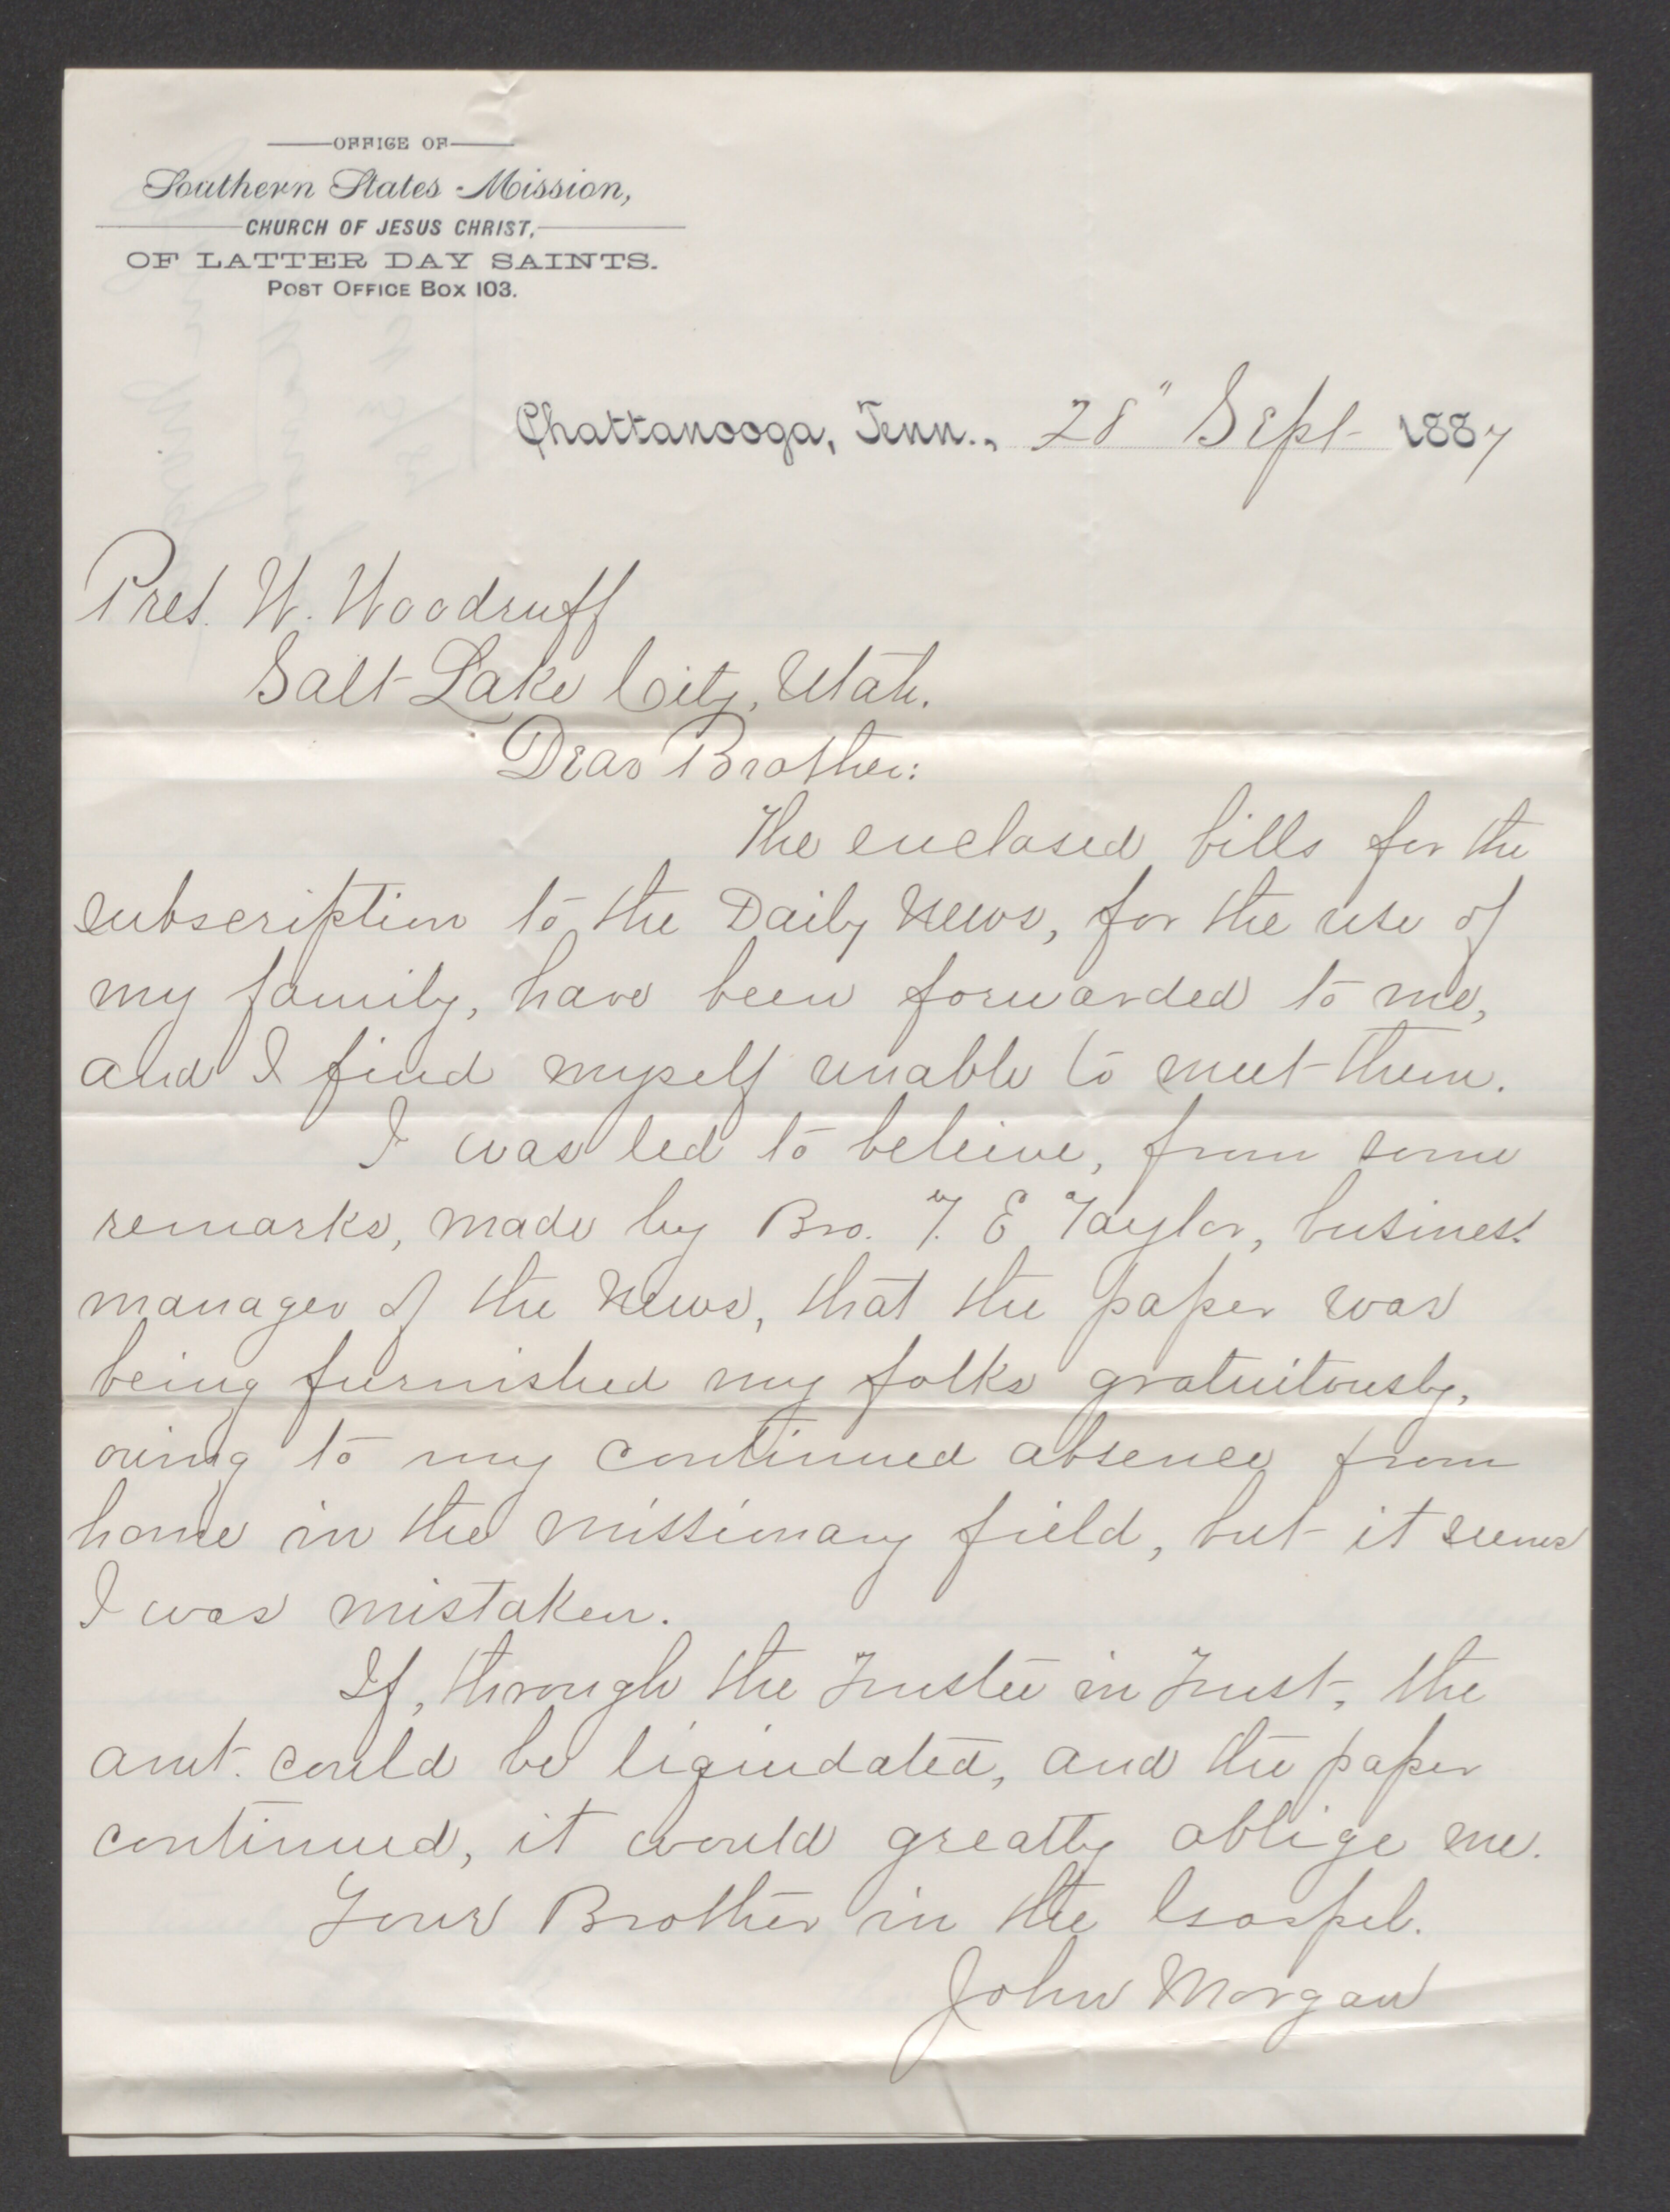 OFFICE OF
Southern States Mission,
CHURCH OF JESUS CHRIST,
OF LATTER DAY SAINTS.
POST OFFICE BOX 103.
Chattanooga, Tenn., 28" Sept 1887
Pres. W. Woodruff
Salt Lake City, Utah.
Dear Brother:
The enclosed bills for the
subscription to the Daily News, for the use of
my family, have been forwarded to me,
and I find myself unable to meet them.
I was led to beleive, from some
remarks, made by Bro. T. E Taylor, business
manager of the News, that the paper was
being furnished my folks gratuitously,
owing to my continued absence from
home in the missionary field, but it seems
I was mistaken.
If, through the Trustee in Trust, the
amt. could be liquidated, and the paper
continued, it would greatly oblige me.
Your Brother in the Gospel.
John Morgan